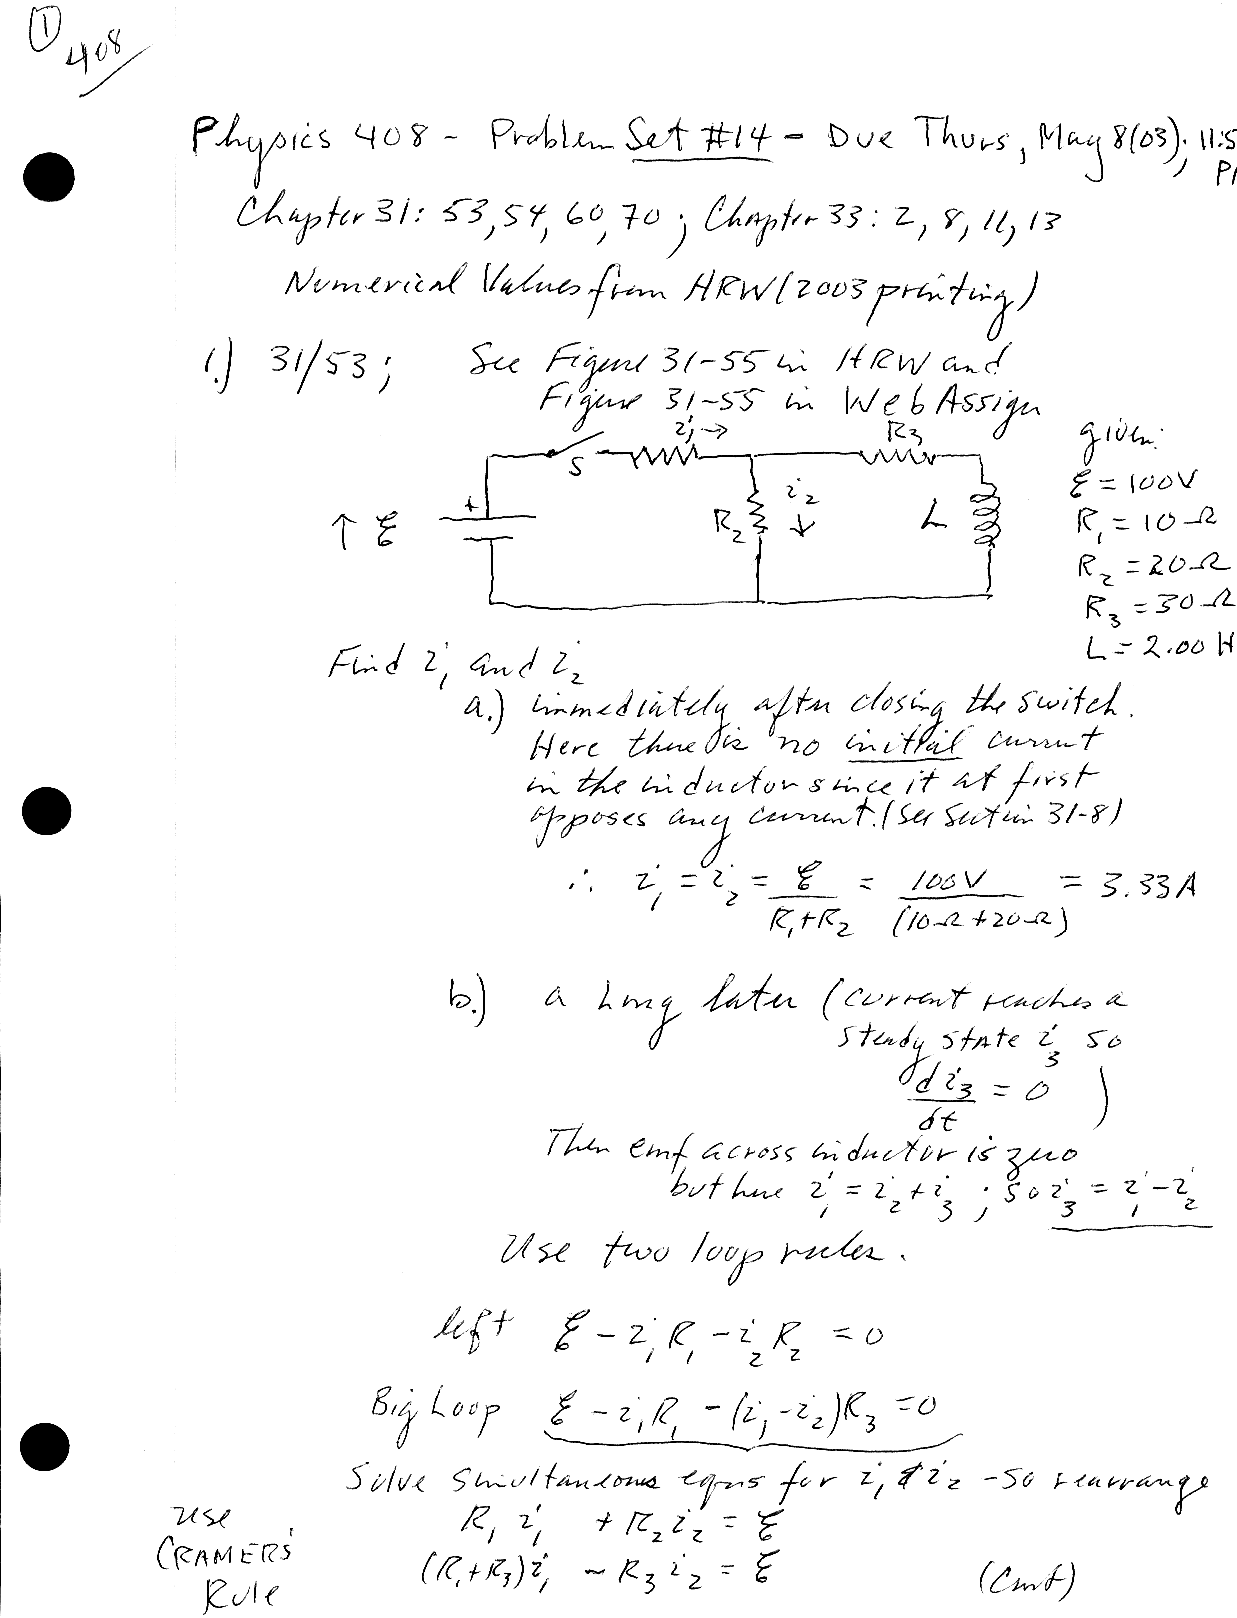 ①
408
Physics 408 - Problem Set #14 - Due Thurs, May 8(03); 11:5
P
Chapter 31: 53, 54, 60, 70 ; Chapter 33: 2, 8, 11, 13
Numerical Values from HRW (2003 printing)
1.) 31/53; See Figure 31-55 in HRW and
Figure 31-55 in WebAssign
i₁→ R₃ given:
S
ℰ = 100V
+ ↑ ℰ R₂ i₂ ↓ L R₁ = 10Ω
R₂ = 20Ω
R₃ = 30Ω
L = 2.00 H
Find i₁ and i₂
a.) immediately after closing the switch.
Here there is no initial current
in the inductor since it at first
opposes any current. (See Section 31-8)
∴ i₁ = i₂ = ℰ/(R₁+R₂) = 100V/(10Ω+20Ω) = 3.33A
b.) a long later (current reaches a
steady state i₃ so
di₃/dt = 0 )
Then emf across inductor is zero
but here i₁ = i₂ + i₃ ; so i₃ = i₁ - i₂
Use two loop rules.
left ℰ - i₁R₁ - i₂R₂ = 0
Big Loop ℰ - i₁R₁ - (i₁-i₂)R₃ = 0
Solve simultaneous eqns for i₁ & i₂ - so rearrange
use R₁ i₁ + R₂ i₂ = ℰ
CRAMERS' (R₁+R₃)i₁ - R₃ i₂ = ℰ
Rule (Cont)